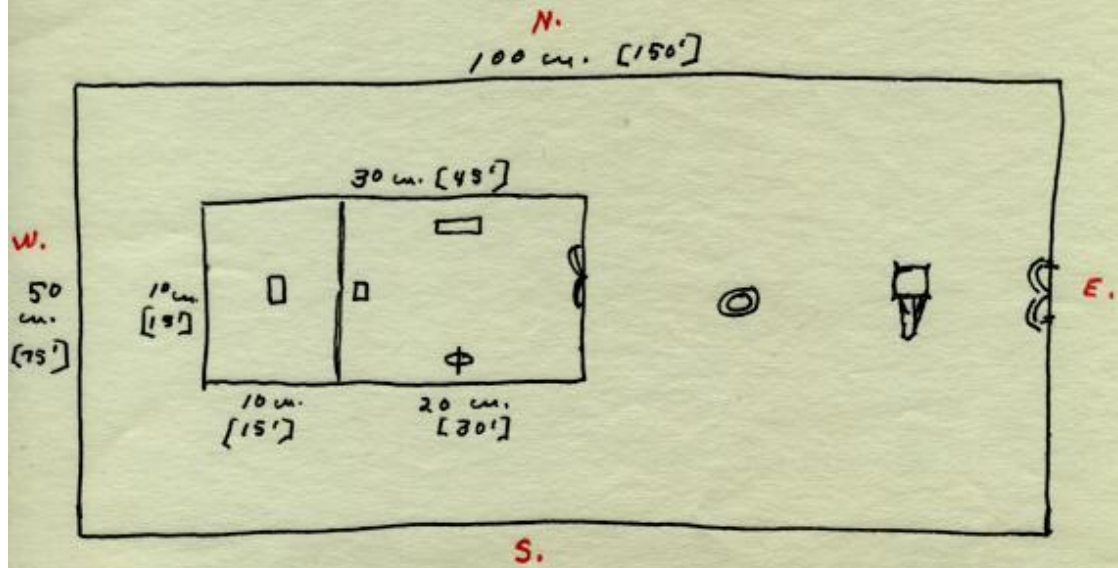 N.
100 cm. [150']
30 cm. [45']
W.
50
cm.
[75']
10 cm.
[15']
E.
10 cm.
[15']
20 cm.
[30']
S.